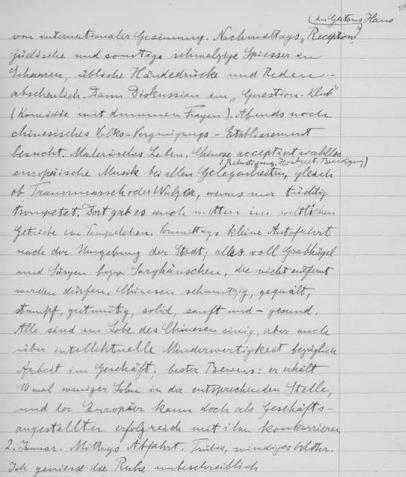 in Gattons Haus
von internationaler Gesinnung. Nachmittags „Reception“
jüdische und sonstige schmalzige Spiesser in
Scharen, übliche Händedrücke und Reden –
abscheulich. Dann Diskussion im „Question-Klub“
(Komödie mit dummen Fragen). Abends noch
chinesisches Volks-Vergnügungs-Etablissement
besucht. Malerisches Leben. Chinese acceptiert wahllos
(Belustigung, Hochzeit, Beerdigung)
europäische Musik bei allen Gelegenheiten, gleich
ob Trauermarsch oder Walzer, wenns nur tüchtig
trompetet. Dort gab es auch mitten im weltlichen
Getriebe ein Tempelchen. Vormittags kleine Autofahrt
nach der Umgebung der Stadt; alles voll Grabhügel
und Särgen bezw Sarghäuschen, die nicht entfernt
werden dürfen. Chinesen schmutzig, gequält,
stumpf, gutmütig, solid, sanft und – gesund.
Alle sind im Lobe des Chinesen einig, aber auch
über intellektuelle Minderwertigkeit bezüglich
Arbeit im Geschäft; bester Beweis: er erhält
10 mal weniger Lohn in der entsprechenden Stelle,
und der Europäer kann doch als Geschäfts-
angestellter erfolgreich mit ihm konkurrieren
2. Januar. Mittags Abfahrt. Trübes, windiges Wetter.
Ich geniesse die Ruhe unbeschreiblich